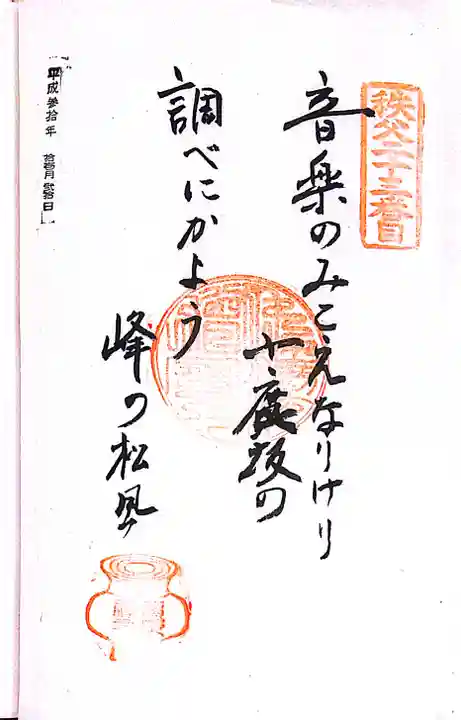 秩父二十三番目
音楽のみこえなりけり
小鹿坂の
調べにかよう
峰の松風
平成参拾年 拾壱月 弐拾日